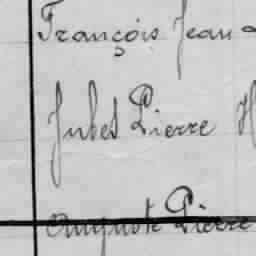 François Jean
Jules Pierre H
Auguste Pierre